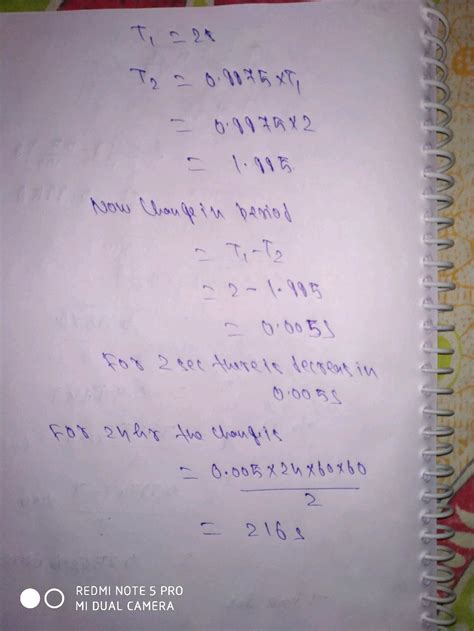 T₁ = 2s
T₂ = 0.9975×T₁
= 0.9975×2
= 1.995
Now change in period
= T₁-T₂
= 2-1.995
= 0.005s
For 2 sec there is decreas in
0.005s
For 24hr the change is
= 0.005×24×60×60
2
= 216s
REDMI NOTE 5 PRO
MI DUAL CAMERA